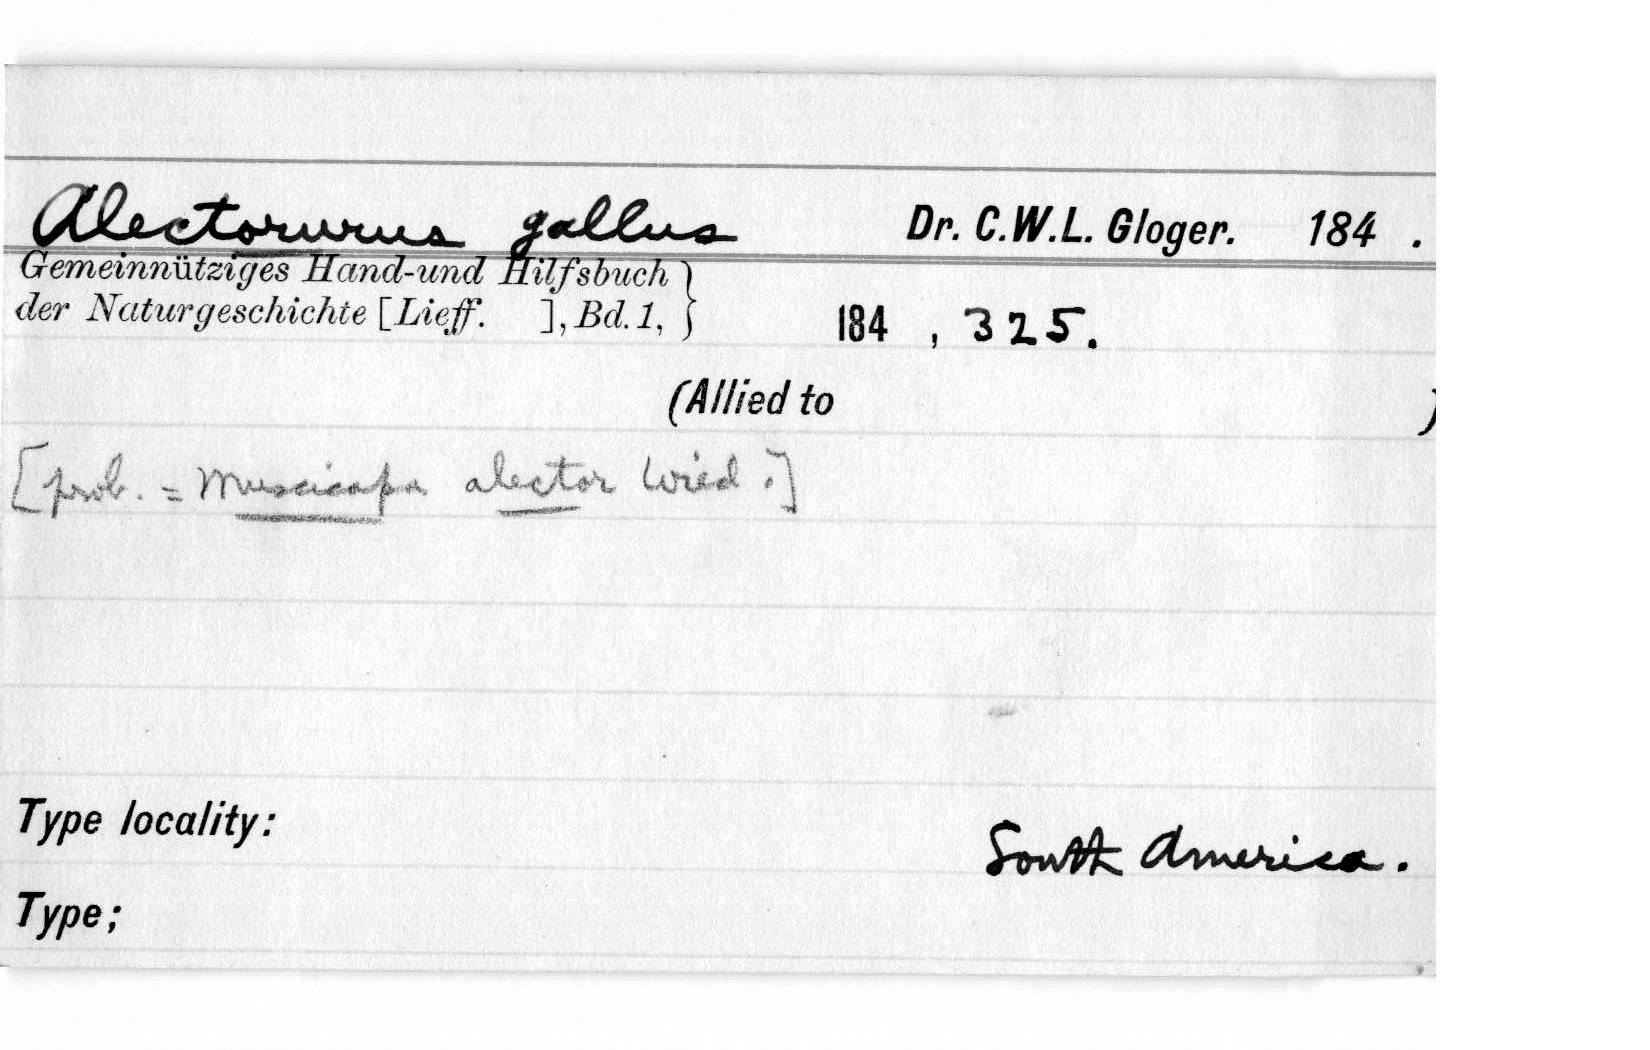 Alectorurus gallus Dr. C.W.L. Gloger. 184 .
Gemeinnütziges Hand-und Hilfsbuch }
der Naturgeschichte [Lieff. ], Bd. 1, 184 , 325.
(Allied to )
[prob. = Muscicapa alector Wied.]
Type locality: South America.
Type;